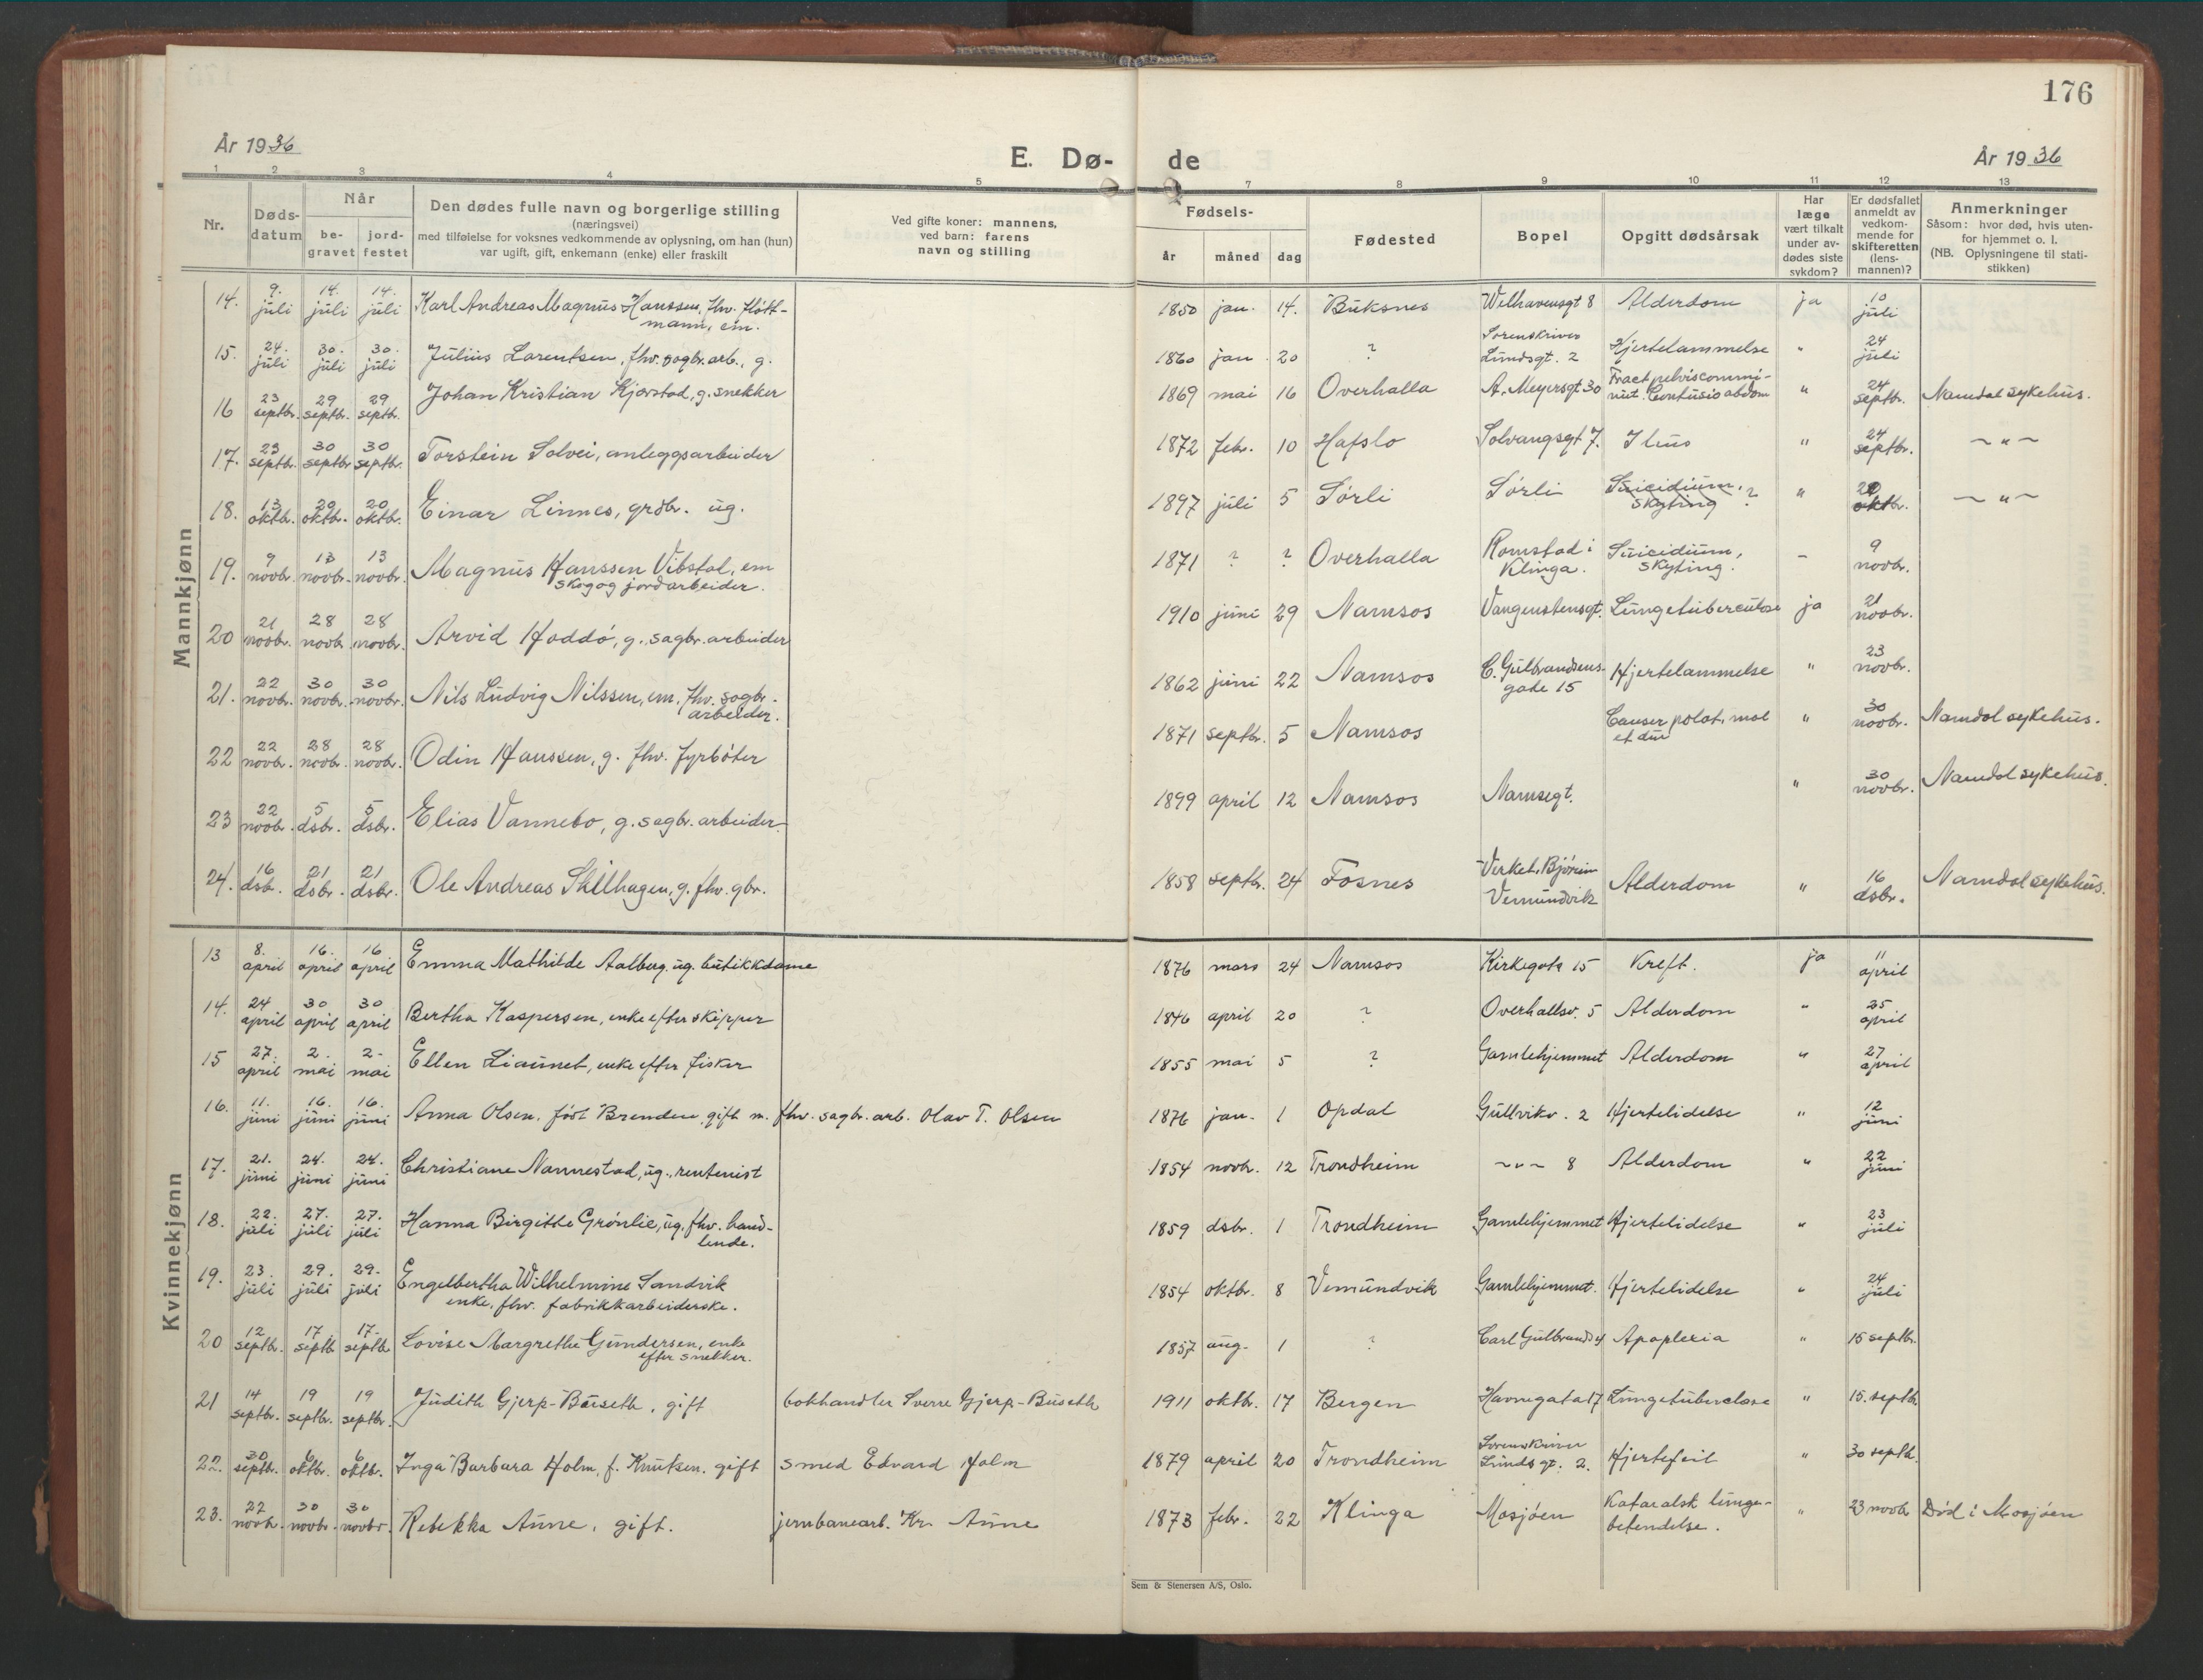 176
År 1936 E. Dø- de År 1936
1 2 3 4 5 7 8 9 10 11 12 13
Nr.
Døds-
datum
Når
be-
gravet
jord-
festet
Den dødes fulle navn og borgerlige stilling
(næringsvei)
med tilføielse for voksnes vedkommende av oplysning, om han (hun)
var ugift, gift, enkemann (enke) eller fraskilt
Ved gifte koner: mannens,
ved barn: farens
navn og stilling
Fødsels-
år måned dag
Fødested
Bopel
Opgitt dødsårsak
Har
læge
vært tilkalt
under av-
dødes siste
sykdom?
Er dødsfallet
anmeldt av
vedkom-
mende for
skifteretten
(lens-
mannen)?
Anmerkninger
Såsom: hvor død, hvis uten-
for hjemmet o. l.
(NB. Oplysningene til stati-
stikken)
Mannkjønn
14. 9. juli 14. juli 14. juli Karl Andreas Magnus Hanssen, fhv. fløtt-
mann, em. 1850 jan. 14. Buksnes Welhavensgt 8 Alderdom ja 10 juli
15. 24. juli 30. juli 30. juli Julius Lorentsen, fhv. sagbr. arb., g. 1860 jan. 20 ? Sorenskriver
Lundsgt. 2 Hjertelammelse " 24 juli
16 23 septbr. 29 septbr. 29 septbr. Johan Kristian Kjørstad, g. snekker 1869 mai 16 Overhalla A. Meyersgt 30 Fract pelviscommi-
nut. Contusio abdom " 24 septbr. Namdal sykehus.
17. 23 septbr. 30 septbr 30 septbr. Torstein Solvei, anleggsarbeider 1872 febr. 10 Hafslo Solvangsgt 7. Ileus " 24 septbr. ~ " ~
18. 13 oktbr. 20 oktbr. 20 oktbr. Einar Linnes, grdbr. ug. 1897 juli 5 Sørli Sørli Suicidium,
skyting ? " 20 oktbr. ~ " ~
19. 9 novbr. 13 novbr. 13 novbr. Magnus Hanssen Vibstal, em
skog og jordarbeider. 1871 ? ? Overhalla Romstad i
Klinga. Suicidium,
skyting. - 9 novbr.
20 21 novbr. 28 novbr 28 novbr. Arvid Hoddø, g. sagbr. arbeider 1910 juni 29 Namsos Vangenstensgt. Lungetuberculose ja 21 novbr.
21. 22 novbr. 30 novbr. 30 novbr. Nils Ludvig Nilssen, em. fhv. sagbr.
arbeider. 1862 juni 22 Namsos C. Gulbrandsens-
gade 15 Hjertelammelse " 23 novbr.
22 22 novbr. 28 novbr. 28 novbr. Odin Hanssen, g. fhv. fyrbøter 1871 septbr. 5 Namsos Cancer palat. mol
et dur " 30 novbr. Namdal sykehus.
23 22 novbr. 5 dsbr. 5 dsbr. Elias Vannebo, g. sagbr. arbeider 1899 april 12 Namsos Namsegt. " 30 novbr. Namdal sykehus.
24. 16 dsbr. 21 dsbr. 21 dsbr. Ole Andreas Skilhagen, g. fhv. gbr. 1858 septbr. 24 Fosnes Verket, Bjørum
Vemundvik Alderdom " 16 dsbr. Namdal sykehus.
Kvinnekjønn
13 8. april 16. april 16 april Emma Mathilde Aalberg, ug. butikkdame 1876 mars 24 Namsos Kirkegata 15 Kreft. ja 11 april
14. 24 april 30 april 30 april Bertha Kaspersen, enke efter skipper 1846 april 20 ? Overhallsv. 5 Alderdom " 25 april
15 27. april 2. mai 2. mai Ellen Liaunet, enke efter fisker 1855 mai 5 ? Gamlehjemmet Alderdom " 27 april
16. 11. juni 16. juni 16. juni Anna Olsen, født Brenden, gift m. fhv. sagbr. arb. Olav T. Olsen 1876 jan. 1 Opdal Gullvikv. 2 Hjertelidelse " 12 juni
17. 21. juni 24. juni 24. juni Christiane Nannestad, ug., rentenist 1854 novbr. 12 Trondheim ~ " ~ 8 Alderdom " 22 juni
18. 22. juli 27. juli 27. juli Hanna Birgitte Grønlie, ug, fhv. hand-
lende. 1859 dsbr. 1 Trondheim Gamlehjemmet Hjertelidelse " 23 juli
19. 23. juli 29. juli 29. juli Engelbertha Wilhelmine Sandvik
enke, fhv. fabrikkarbeiderske. 1854 oktbr. 8 Vemundvik Gamlehjemmet. Hjertelidelse " 24 juli
20 12 septbr. 17 septb 17. septbr Lovise Margrethe Gundersen, enke
efter snekker. 1857 aug. 1 ? Carl Gulbrands 4 Apoplexia " 15 septbr.
21 14 septbr. 19 septbr. 19 septbr. Judith Gjerp-Buseth, gift bokhandler Sverre Gjerp-Buseth 1911 oktbr. 17 Bergen Havnegata 17 Lungetuberclose " 15. septb
22. 30 septbr. 6 oktbr. 6 oktbr. Inga Barbara Holm, f. Knutsen. gift smed Edvard Holm 1879 april 20 Trondheim Sorenskriver
Lunds gt. 2. Hjertefeil " 30 septb.
23. 22 novbr. 30 novbr. 30 novbr. Rebekka Aune, gift. jernbanearb. Kr. Aune 1873 febr. 22 Klinga Mosjøen Kataralsk lunge-
betendelse. " 23 novbr Død i Mosjøen
Sem & Stenersen A/S, Oslo.